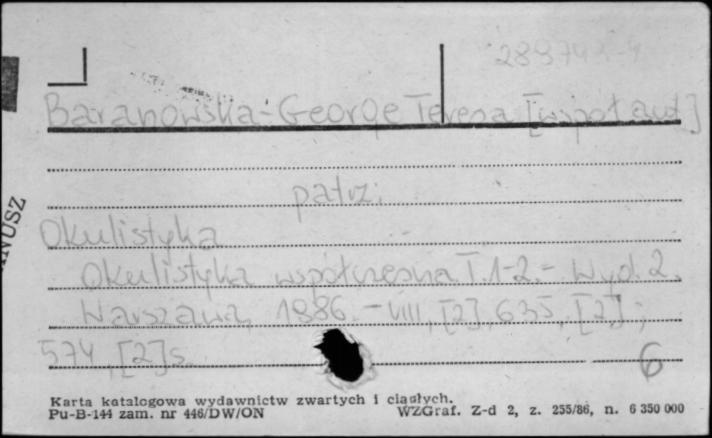 289742-4
Baranowska-George Teresa [współaut]
patrz:
Okulistyka
Okulistyka współczesna T. 1-2.- Wyd. 2.
Warszawa, 1986. - VIII, [2], 635, [2];
574, [2] s.
6
NUSZ
Karta katalogowa wydawnictw zwartych i ciągłych.
Pu-B-144 zam. nr 446/DW/ON WZGraf. Z-d 2, z. 255/86, n. 6 350 000